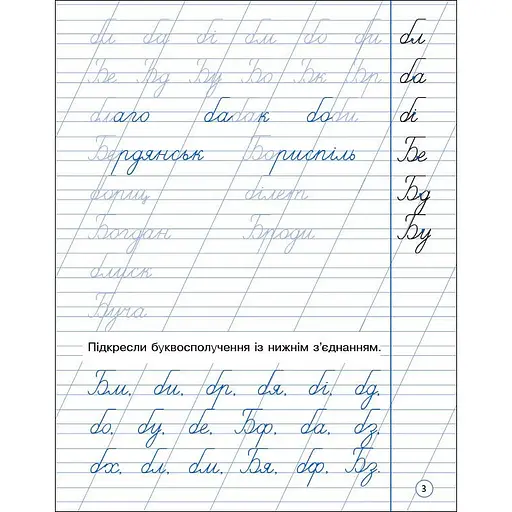 бл бу бі бм бо би бл
Бе Бд Бу Бо Бк Бр ба
благо бабак боби бі
Бердянськ Бориспіль Бе
борщ білет Бд
Богдан Броди Бу
блиск
Буча
Підкресли буквосполучення із нижнім з'єднанням.
Бм, би, бр, бя, бі, бд,
бо, бу, бе, Бф, ба, бз,
бх, бл, бм, Бя, бф, Бз.
3